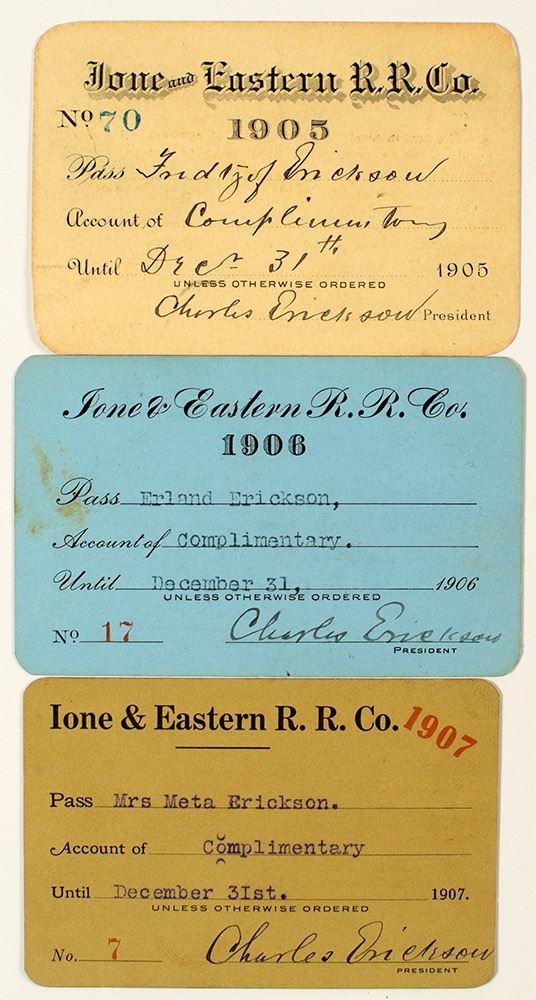 Ione and Eastern R.R.Co.
Nº 70
1905
Pass Fridtjof Erickson
Account of Complimentary
Until Dec 31th 1905
UNLESS OTHERWISE ORDERED
Charles Erickson President
Ione & Eastern R. R. Co.
1906
Pass Erland Erickson,
Account of Complimentary.
Until December 31, 1906
UNLESS OTHERWISE ORDERED
Nº 17 Charles Erickson
PRESIDENT
Ione & Eastern R. R. Co. 1907
Pass Mrs Meta Erickson.
Account of Complimentary
Until December 3Ist. 1907.
UNLESS OTHERWISE ORDERED
No. 7 Charles Erickson
PRESIDENT